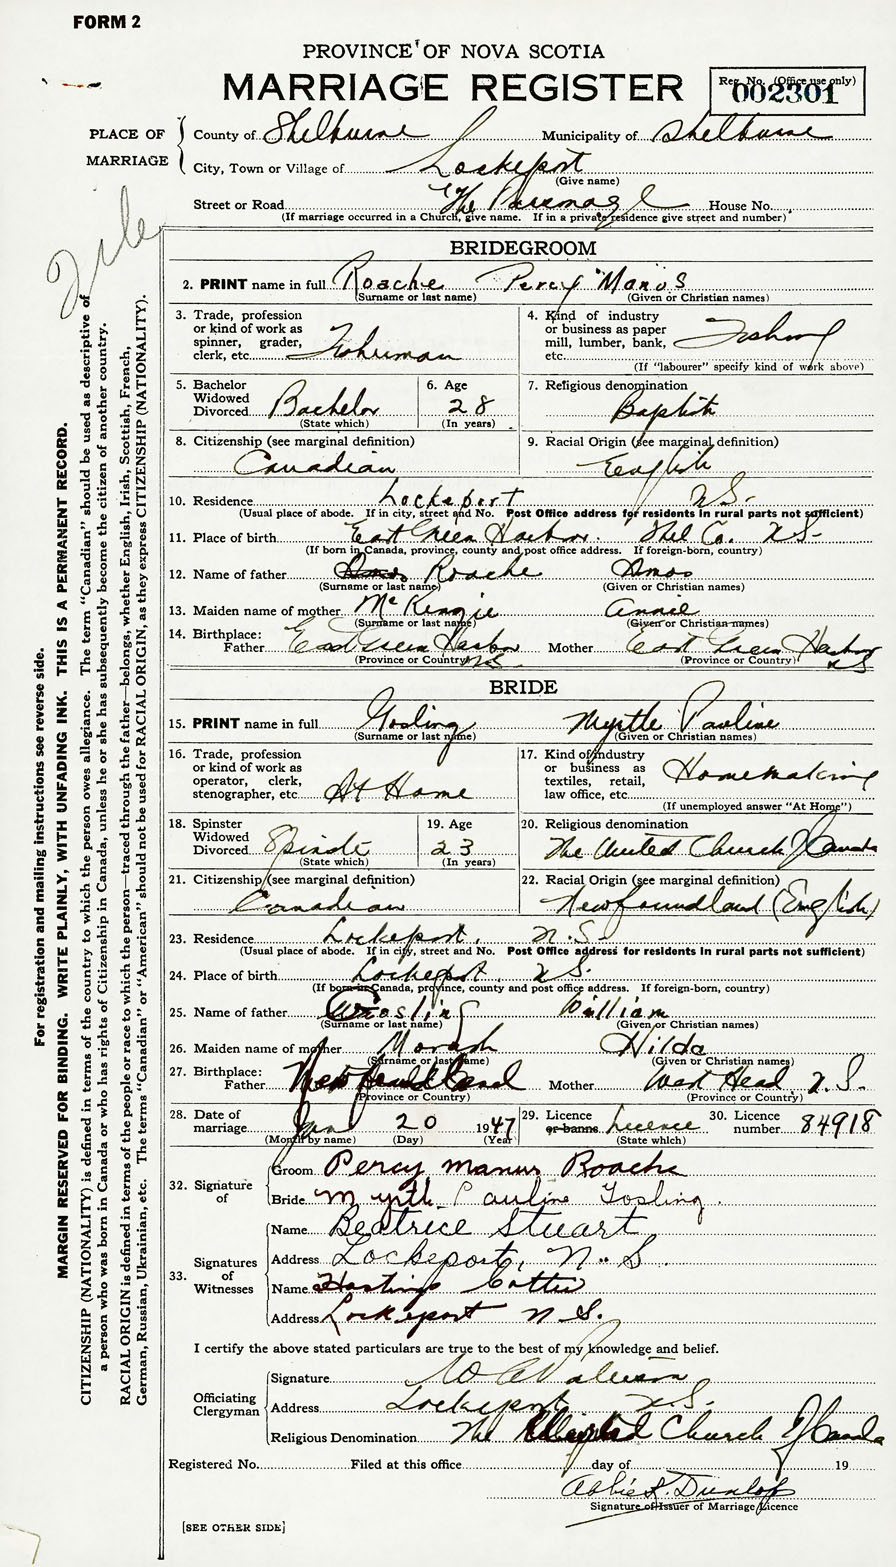 FORM 2
PROVINCE OF NOVA SCOTIA
MARRIAGE REGISTER
Reg. No. (Office use only)
002301
PLACE OF MARRIAGE
County of Shelburne Municipality of Shelburne
City, Town or Village of Lockeport
(Give name)
Street or Road The Parsonage House No.
(If marriage occurred in a Church, give name. If in a private residence give street and number)
BRIDEGROOM
2. PRINT name in full Roache Percy Manus
(Surname or last name) (Given or Christian names)
3. Trade, profession or kind of work as spinner, grader, clerk, etc. Fisherman
4. Kind of industry or business as paper mill, lumber, bank, etc. Fishing
(If "labourer" specify kind of work above)
5. Bachelor Widowed Divorced Bachelor
(State which)
6. Age 28
(In years)
7. Religious denomination Baptist
8. Citizenship (see marginal definition) Canadian
9. Racial Origin (see marginal definition) English
10. Residence Lockeport N.S.
(Usual place of abode. If in city, street and No. Post Office address for residents in rural parts not sufficient)
11. Place of birth East Green Harbor. Shel Co. N.S.
(If born in Canada, province, county and post office address. If foreign-born, country)
12. Name of father Amos Roache Amos
(Surname or last name) (Given or Christian names)
13. Maiden name of mother McKenzie Annie
(Surname or last name) (Given or Christian names)
14. Birthplace: Father East Green Harbor N.S. Mother East Green Harbor N.S
(Province or Country) (Province or Country)
BRIDE
15. PRINT name in full Gosling Myrtle Pauline
(Surname or last name) (Given or Christian names)
16. Trade, profession or kind of work as operator, clerk, stenographer, etc. At Home
17. Kind of industry or business as textiles, retail, law office, etc. Homemaking
(If unemployed answer "At Home")
18. Spinster Widowed Divorced Spinster
(State which)
19. Age 23
(In years)
20. Religious denomination The United Church of Canada
21. Citizenship (see marginal definition) Canadian
22. Racial Origin (see marginal definition) Newfoundland (English)
23. Residence Lockeport, N.S.
(Usual place of abode. If in city, street and No. Post Office address for residents in rural parts not sufficient)
24. Place of birth Lockeport, N.S.
(If born in Canada, province, county and post office address. If foreign-born, country)
25. Name of father Gosling William
(Surname or last name) (Given or Christian names)
26. Maiden name of mother Morash Hilda
(Surname or last name) (Given or Christian names)
27. Birthplace: Father Newfoundland Mother West Head, N.S.
(Province or Country) (Province or Country)
28. Date of marriage Jan 20 1947
(Month by name) (Day) (Year)
29. Licence or banns Licence
(State which)
30. Licence number 84918
32. Signature of
Groom Percy Manus Roache
Bride Myrtle Pauline Gosling.
33. Signatures of Witnesses
Name Beatrice Stuart
Address Lockeport, N.S.
Name Hastings
Address Lockeport N.S.
I certify the above stated particulars are true to the best of my knowledge and belief.
Officiating Clergyman
Signature
Address Lockeport N.S.
Religious Denomination The United Church of Canada
Registered No. Filed at this office day of 19
Abbie K. Dunlop
Signature of Issuer of Marriage Licence
[SEE OTHER SIDE]
For registration and mailing instructions see reverse side.
MARGIN RESERVED FOR BINDING. WRITE PLAINLY, WITH UNFADING INK. THIS IS A PERMANENT RECORD.
CITIZENSHIP (NATIONALITY) is defined in terms of the country to which the person owes allegiance. The term "Canadian" should be used as descriptive of
a person who was born in Canada or who has rights of Citizenship in Canada, unless he or she has subsequently become the citizen of another country.
RACIAL ORIGIN is defined in terms of the people or race to which the person—traced through the father—belongs, whether English, Irish, Scottish, French,
German, Russian, Ukrainian, etc. The terms "Canadian" or "American" should not be used for RACIAL ORIGIN, as they express CITIZENSHIP (NATIONALITY).